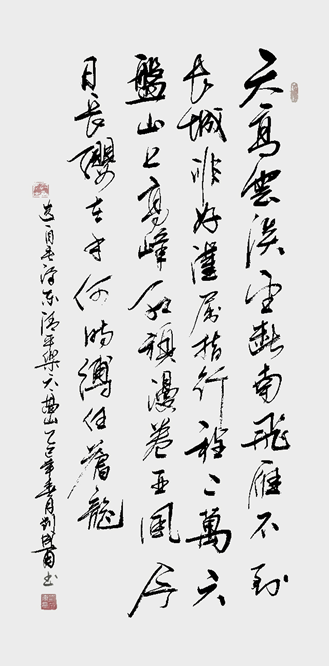 天高雲淡望斷南飛雁不到
长城非好漢屈指行程二萬六
盤山上高峰紅旗漫卷西風今
日長纓在手何時縛住蒼龍
选自毛泽东清平樂六盘山乙巳年春月刘成书